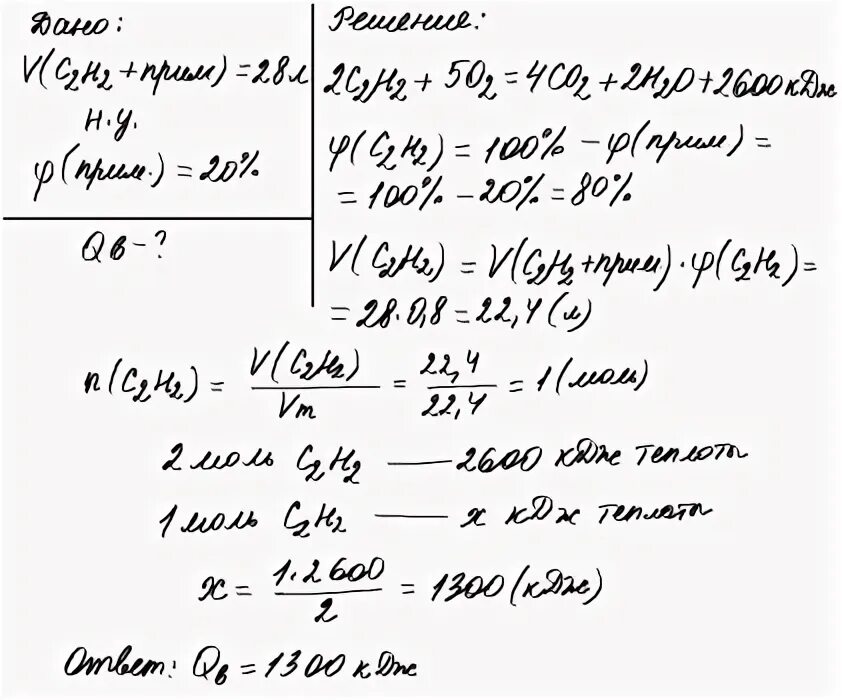 Дано:
V(C₂H₂ + прим) = 28 л
н.у.
φ(прим.) = 20%
Qв - ?
Решение:
2C₂H₂ + 5O₂ = 4CO₂ + 2H₂O + 2600 кДж
φ(C₂H₂) = 100% - φ(прим) =
= 100% - 20% = 80%
V(C₂H₂) = V(C₂H₂ + прим) · φ(C₂H₂) =
= 28 · 0,8 = 22,4 (л)
n(C₂H₂) = V(C₂H₂) / Vm = 22,4 / 22,4 = 1 (моль)
2 моль C₂H₂ — 2600 кДж теплоты
1 моль C₂H₂ — x кДж теплоты
x = 1·2600 / 2 = 1300 (кДж)
Ответ: Qв = 1300 кДж